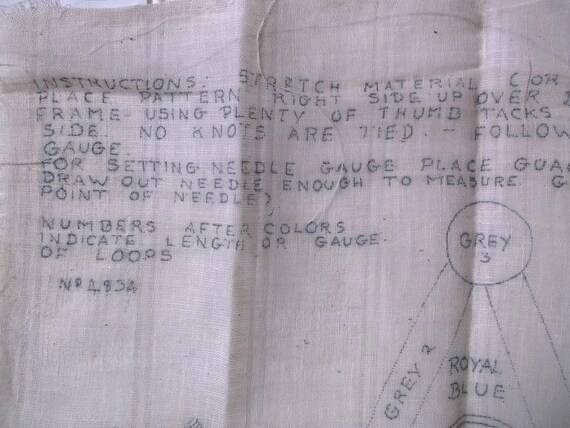 INSTRUCTIONS. STRETCH MATERIAL (OR
PLACE PATTERN RIGHT SIDE UP OVER
FRAME USING PLENTY OF THUMB TACKS
SIDE. NO KNOTS ARE TIED. - FOLLOW
GAUGE.
FOR SETTING NEEDLE GAUGE PLACE GUAG
DRAW OUT NEEDLE ENOUGH TO MEASURE G
POINT OF NEEDLE)
NUMBERS AFTER COLORS
INDICATE LENGTH OR GAUGE
OF LOOPS
No 1834
GREY
3
GREY 2
ROYAL
BLUE